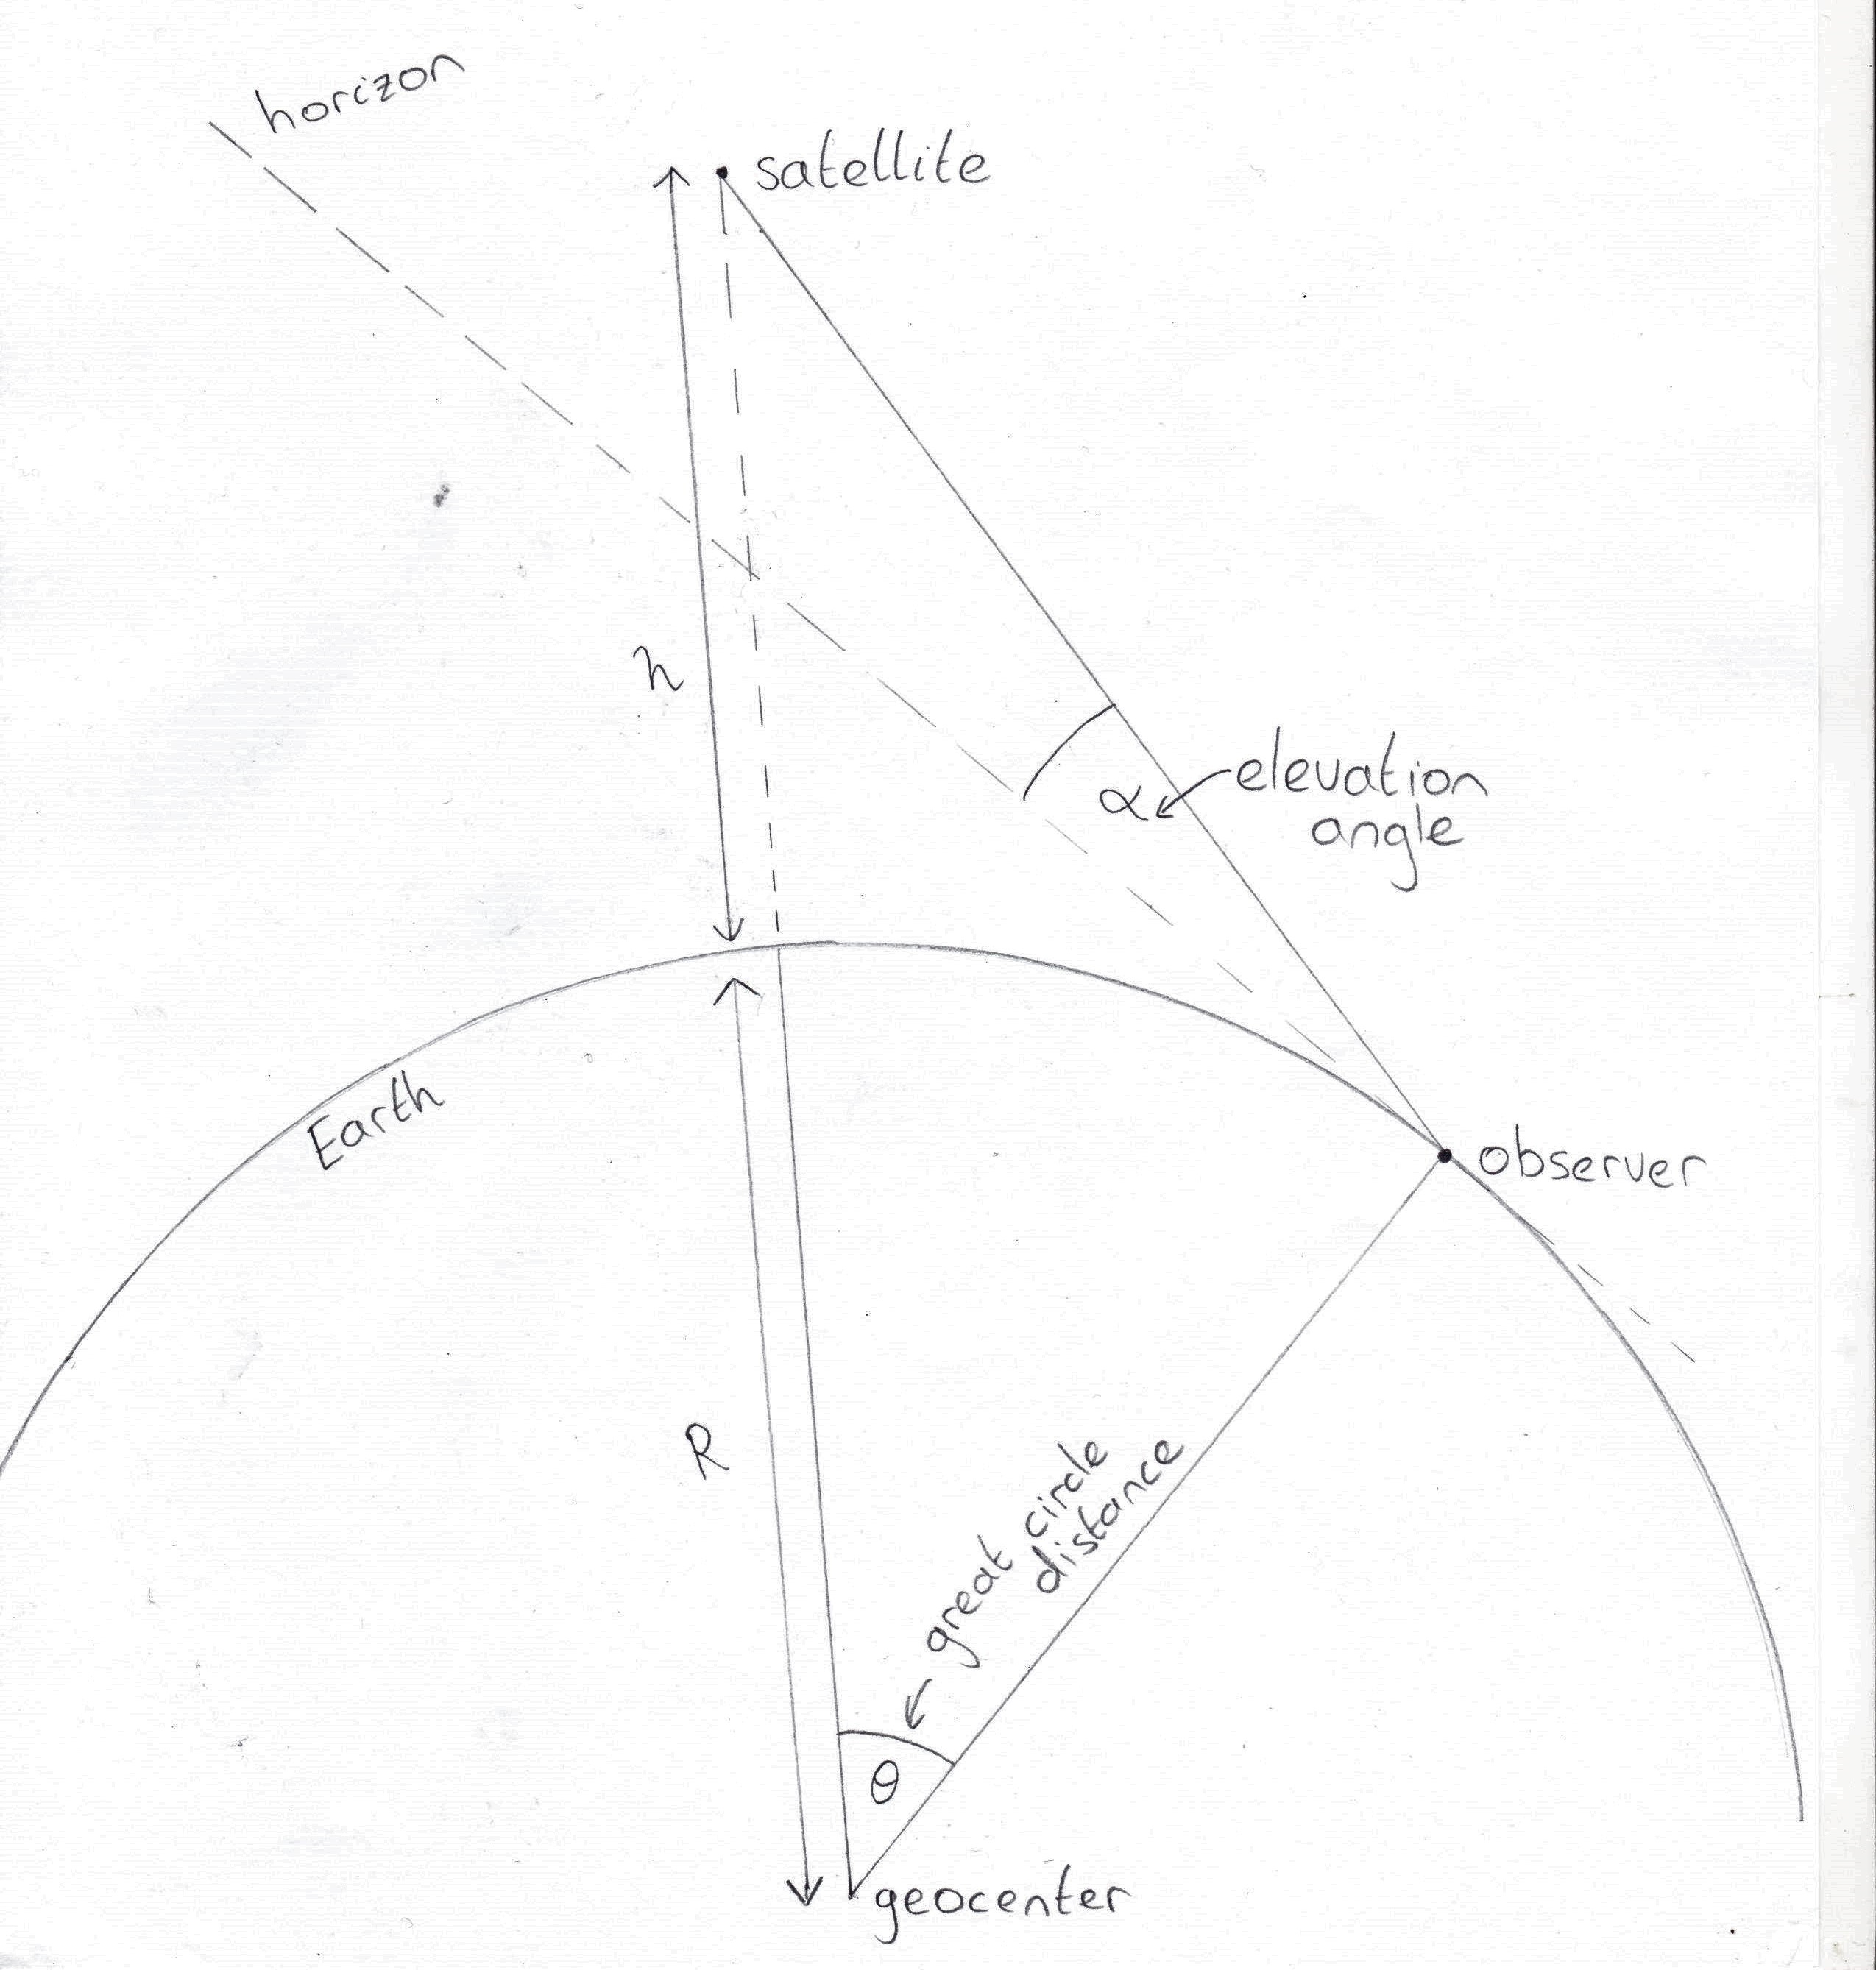 horizon
satellite
h
α
elevation
angle
Earth
observer
R
great circle
distance
θ
geocenter